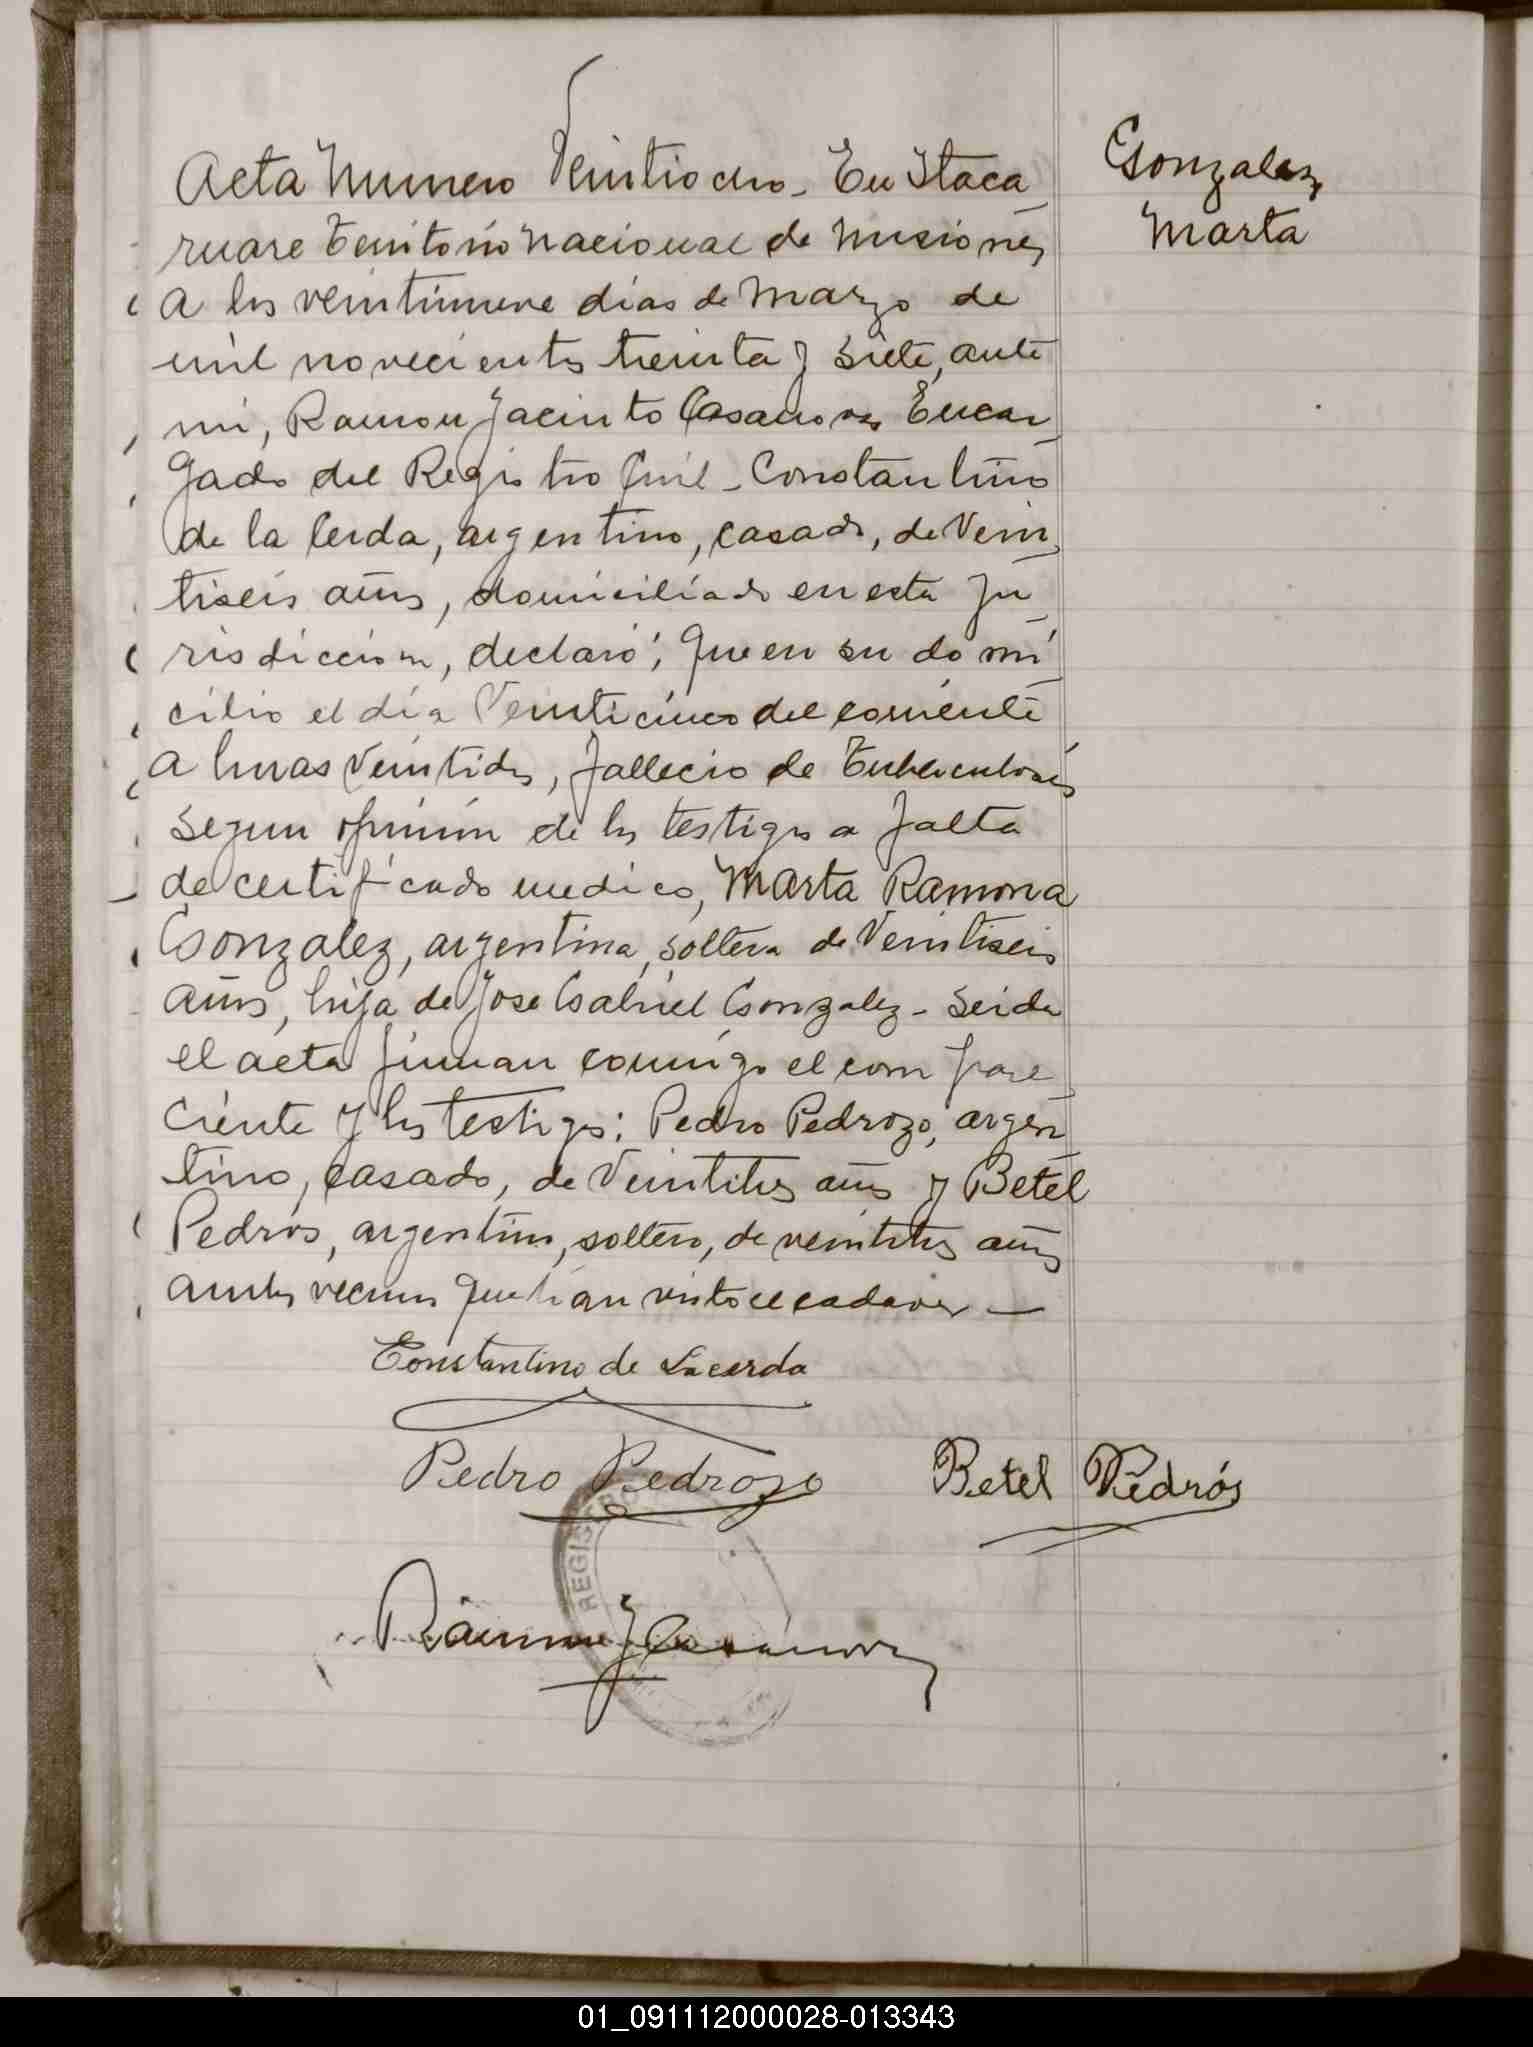 Acta Numero Veintiocho - En Itaca
ruare Territorio Nacional de Misiones
a los veintinueve dias de Marzo de
mil novecientos treinta y siete, ante
mi, Ramon Jacinto Casanova Encar
gado del Registro Civil - Constantino
de la Cerda, argentino, casado, de Vein
tiseis años, domiciliado en esta Ju
risdiccion, declaró; Que en su domi
cilio el día Veinticinco del corriente
a horas Veintidos, fallecio de Tuberculosis
segun opinión de los testigos a falta
de certificado medico, Marta Ramona
Gonzalez, argentina, soltera de Veintiseis
años, hija de Jose Gabriel Gonzalez - Leida
el acta firman conmigo el compare
ciente y los testigos: Pedro Pedrozo, argen
tino, casado, de Veintitres años y Betel
Pedrós, argentino, soltero, de veintitres años
ambos vecinos que han visto el cadaver —
Gonzalez,
Marta
Constantino de Lacerda
Pedro Pedrozo Betel Pedrós
Ramon J Casanova
REGISTRO
01_091112000028-013343